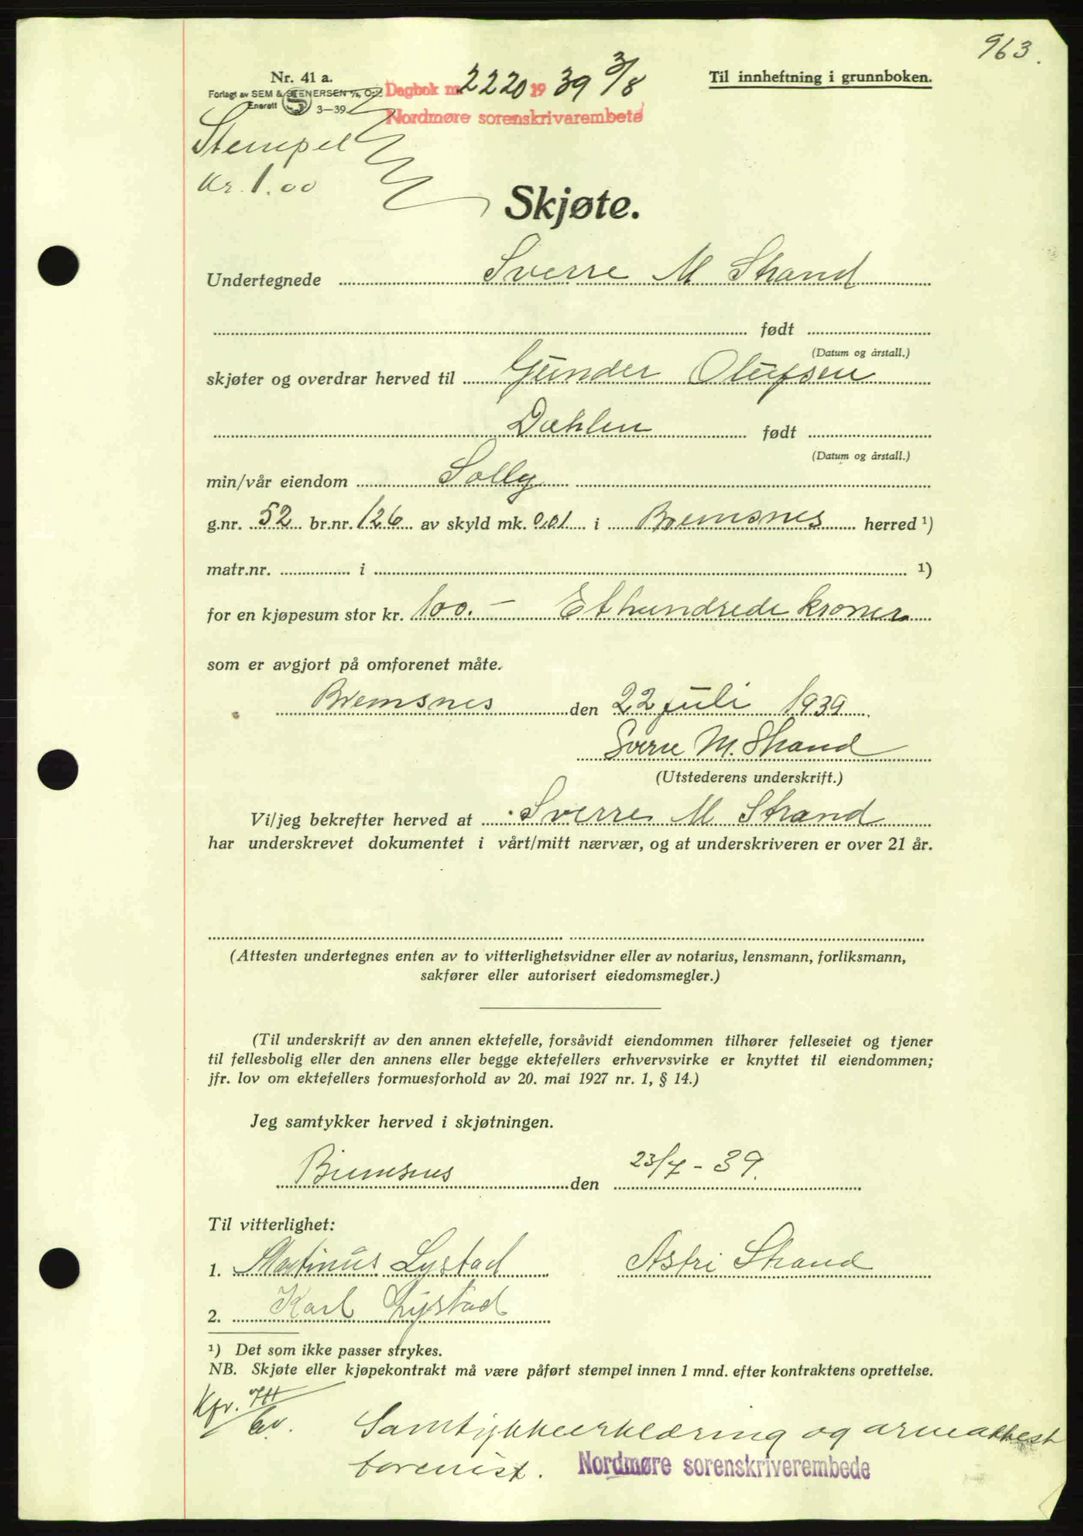 963.
Nr. 41 a.
Forlagt av SEM & STENERSEN A/S, Oslo
Enerett S 3—39
Dagbok nr. 2220 1939 3/8
Nordmøre sorenskrivarembete
Til innheftning i grunnboken.
Stempel
Kr. 1.00
Skjøte.
Undertegnede Sverre M Strand
født
(Datum og årstall.)
skjøter og overdrar herved til Gunder Olufsen
Dahlen født
(Datum og årstall.)
min/vår eiendom Solly
g.nr. 52 br.nr. 126 av skyld mk. 0.01 i Bremsnes herred ¹)
matr.nr. i ¹)
for en kjøpesum stor kr. 100.- Ethundrede kroner
som er avgjort på omforenet måte.
Bremsnes den 22 juli 1939.
Sverre M. Strand
(Utstederens underskrift.)
Vi/jeg bekrefter herved at Sverre M Strand
har underskrevet dokumentet i vårt/mitt nærvær, og at underskriveren er over 21 år.
(Attesten undertegnes enten av to vitterlighetsvidner eller av notarius, lensmann, forliksmann,
sakfører eller autorisert eiedomsmegler.)
(Til underskrift av den annen ektefelle, forsåvidt eiendommen tilhører felleseiet og tjener
til fellesbolig eller den annens eller begge ektefellers erhvervsvirke er knyttet til eiendommen;
jfr. lov om ektefellers formuesforhold av 20. mai 1927 nr. 1, § 14.)
Jeg samtykker herved i skjøtningen.
Bremsnes den 23/7 - 39.
Til vitterlighet:
1. Martinus Lystad Astri Strand
2. Karl Lystad
¹) Det som ikke passer strykes.
NB. Skjøte eller kjøpekontrakt må være påført stempel innen 1 mnd. efter kontraktens oprettelse.
Kfr.
Samtykkeerklæring og arveattest
forevist. Nordmøre sorenskriverembede